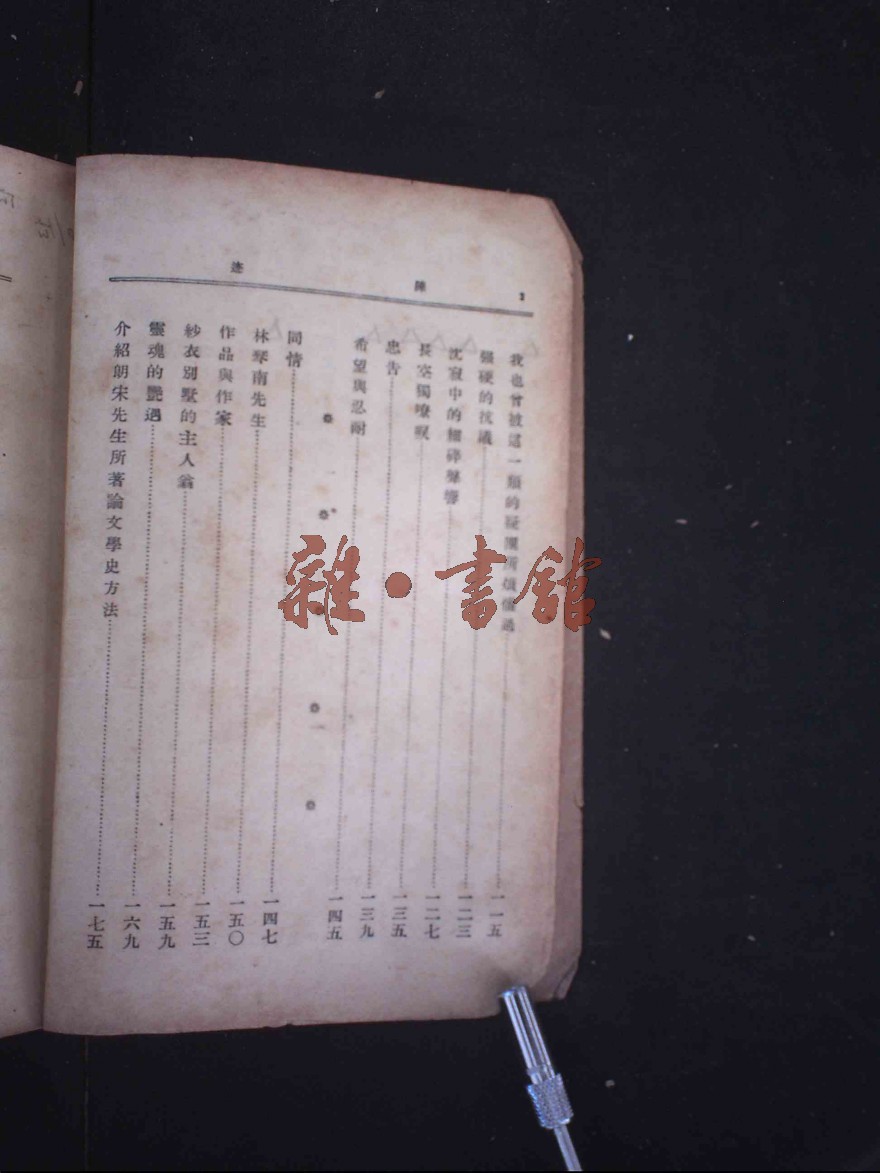 2 陳迹
我也曾被這一類的疑團所煩惱過 一一五
强硬的抗議 一二三
沈寂中的細碎聲響 一二七
長空獨嘹唳 一三五
忠告 一三九
希望與忍耐 一四五
同情 一四七
林琴南先生 一五〇
作品與作家 一五三
紗衣別墅的主人翁 一五九
靈魂的艷遇 一六九
介紹朗宋先生所著論文學史方法 一七五
雜·書館